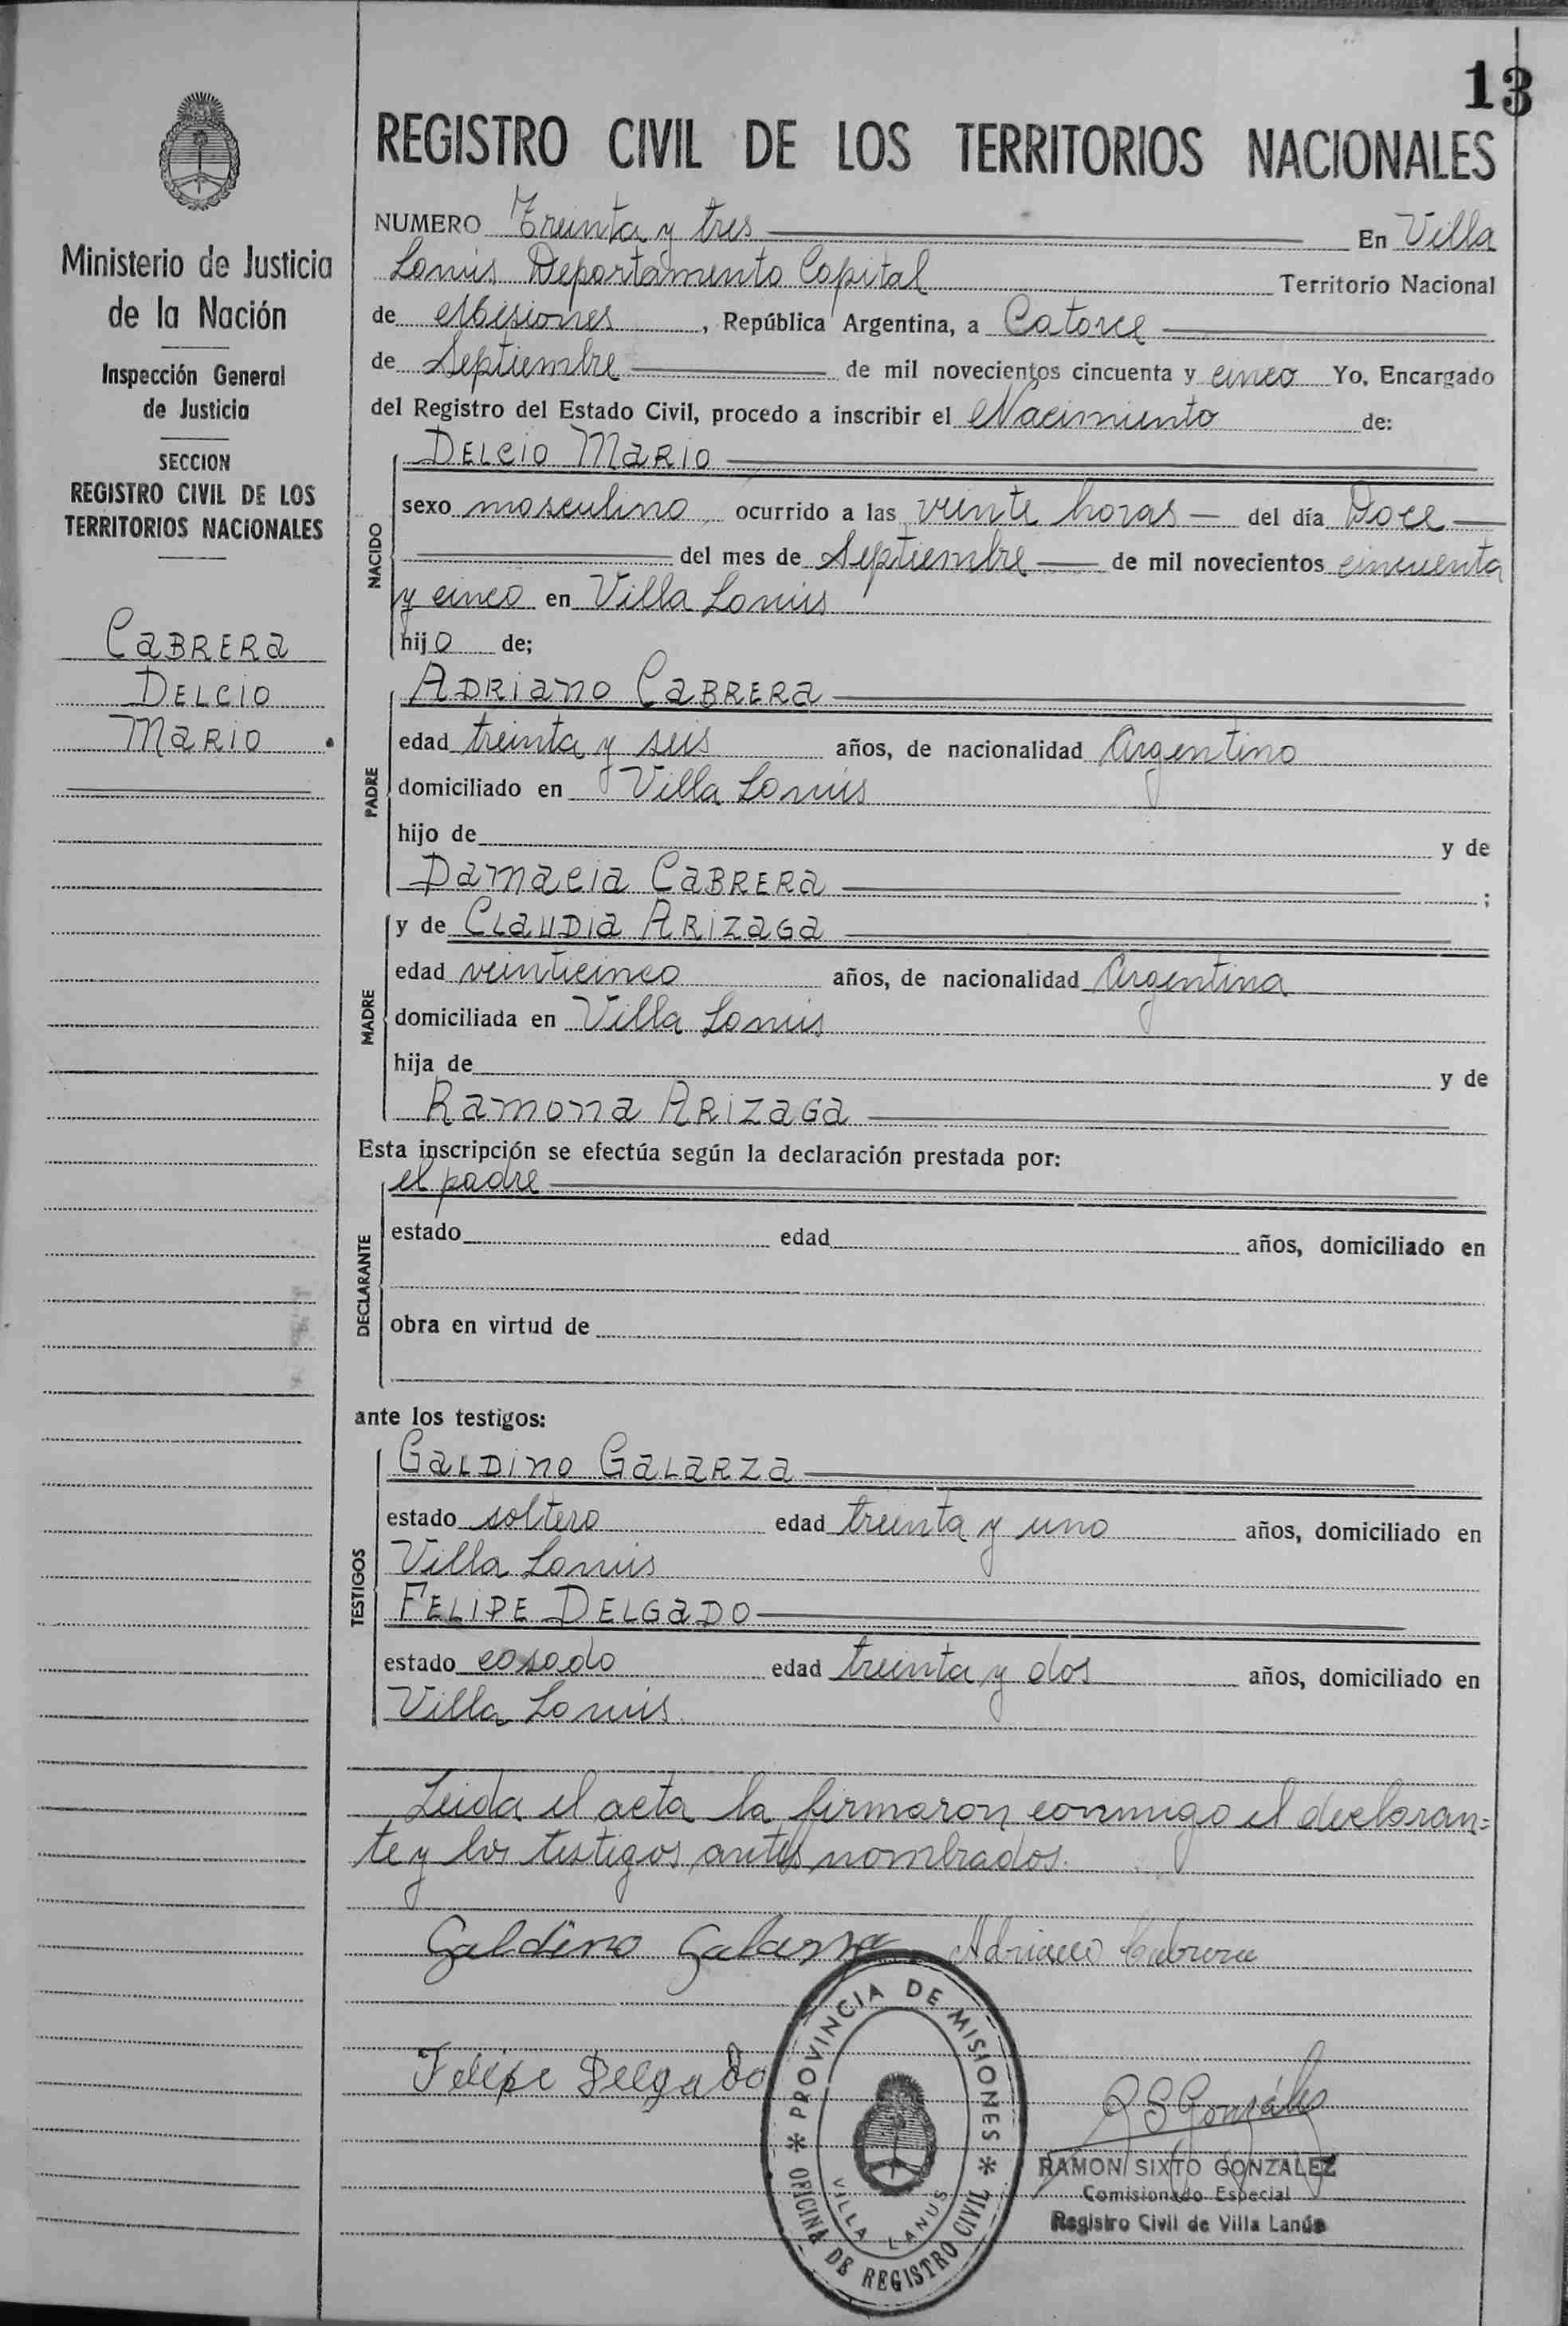 13
REGISTRO CIVIL DE LOS TERRITORIOS NACIONALES
Ministerio de Justicia
de la Nación
Inspección General
de Justicia
SECCION
REGISTRO CIVIL DE LOS
TERRITORIOS NACIONALES
CABRERA
DELCIO
MARIO
NUMERO Treinta y tres En Villa
Lanús Departamento Capital Territorio Nacional
de Misiones, República Argentina, a Catorce
de Septiembre de mil novecientos cincuenta y cinco Yo, Encargado
del Registro del Estado Civil, procedo a inscribir el Nacimiento de:
NACIDO
DELCIO MARIO
sexo masculino, ocurrido a las veinte horas — del día Doce —
del mes de Septiembre — de mil novecientos cincuenta
y cinco en Villa Lanús
hijo de;
PADRE
ADRIANO CABRERA
edad treinta y seis años, de nacionalidad Argentino
domiciliado en Villa Lanús
hijo de y de
Damacia CABRERA ;
MADRE
y de CLAUDIA ARIZAGA
edad veinticinco años, de nacionalidad Argentina
domiciliada en Villa Lanús
hija de y de
Ramona ARIZAGA
Esta inscripción se efectúa según la declaración prestada por:
DECLARANTE
el padre
estado edad años, domiciliado en
obra en virtud de
ante los testigos:
TESTIGOS
GALDINO GALARZA
estado soltero edad treinta y uno años, domiciliado en
Villa Lanús
FELIPE DELGADO
estado casado edad treinta y dos años, domiciliado en
Villa Lanús.
Leida el acta la firmaron conmigo el declaran=
te y los testigos antes nombrados.
Galdino Galarza Adriano Cabrera
Felipe Delgado
R S González
* PROVINCIA DE MISIONES *
OFICINA DE REGISTRO CIVIL
VILLA LANUS
RAMON SIXTO GONZALEZ
Comisionado Especial
Registro Civil de Villa Lanús